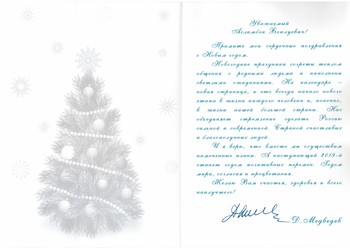 Уважаемый
Примите мои сердечные поздравления
с Новым годом.
Новогодние праздники согреты теплом
общения с родными людьми и наполнены
светлыми ожиданиями. На календаре –
новая страница, и это всегда начало нового
этапа в жизни каждого человека и, конечно,
в жизни нашей большой страны. Нас
объединяет стремление сделать Россию
сильной и современной. Страной счастливых
и благополучных людей.
И я верю, что вместе мы осуществим
намеченные планы. А наступающий 2019-й
станет годом позитивных перемен. Годом
мира, согласия и процветания.
Желаю Вам счастья, здоровья и всего
наилучшего!
Д. Медведев